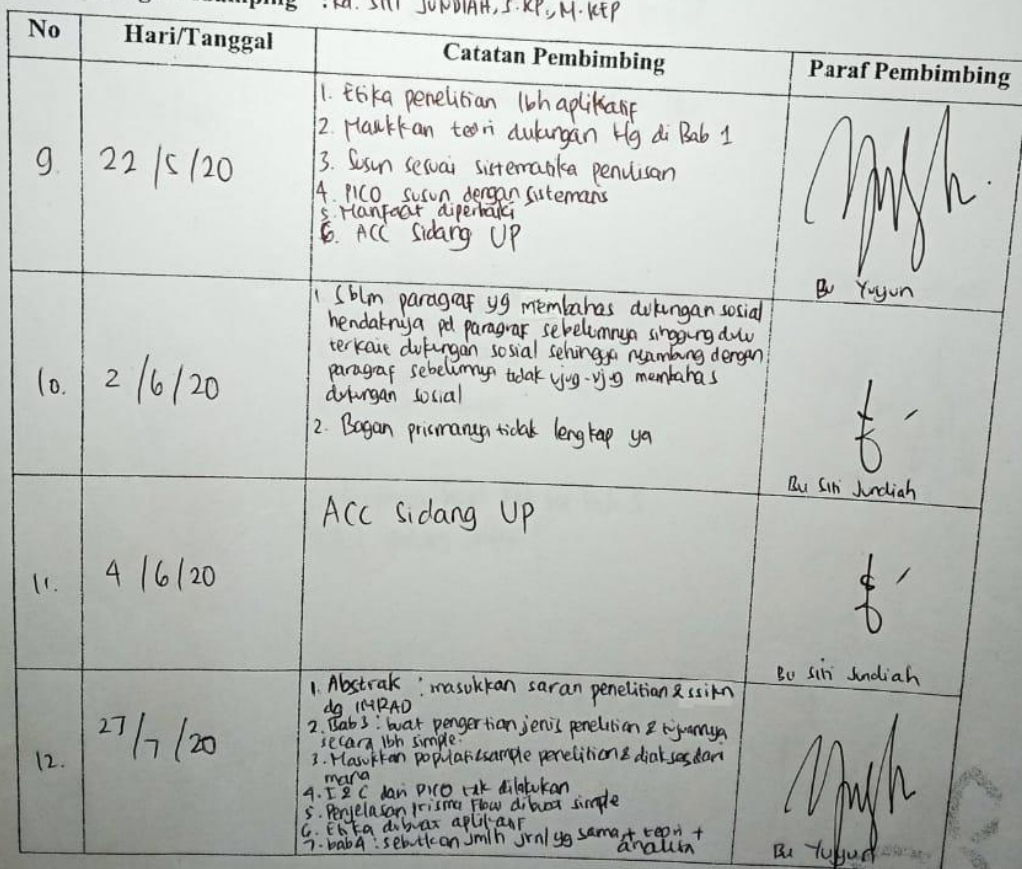 : Rd. SITI JUNDIAH, S.KP., M.KEP
No Hari/Tanggal Catatan Pembimbing Paraf Pembimbing
9. 22/5/20
1. Etika penelitian lbh aplikatif
2. Masukkan teori dukungan klg di Bab 1
3. Susun sesuai sistematika penulisan
4. PICO susun dengan sistematis
5. Manfaat diperbaiki
6. ACC Sidang UP
Bu Yuyun
10. 2/6/20
1 Sblm paragraf yg membahas dukungan sosial
hendaknya pd paragraf sebelumnya singgung dulu
terkait dukungan sosial sehingga nyambung dengan
paragraf sebelumnya tidak ujug-ujug membahas
dukungan sosial
2. Bagan prismanya tidak lengkap ya
Bu Siti Jundiah
11. 4/6/20
ACC Sidang UP
Bu Siti Jundiah
12. 27/7/20
1. Abstrak : masukkan saran penelitian &
dg IMRAD
2. Bab 3 : buat pengertian jenis penelitian & tujuannya
secara lbh simple.
3. Masukkan populasi&sample penelitian & diakses dari
mana
4. I & C dari PICO tak dilakukan
5. Penjelasan Prisma Flow dibuat simple
6. Etika dibuat aplikatif
7. bab 4 : sebutkan jmlh jrnl yg sama + teori +
analisa
Bu Yuyun